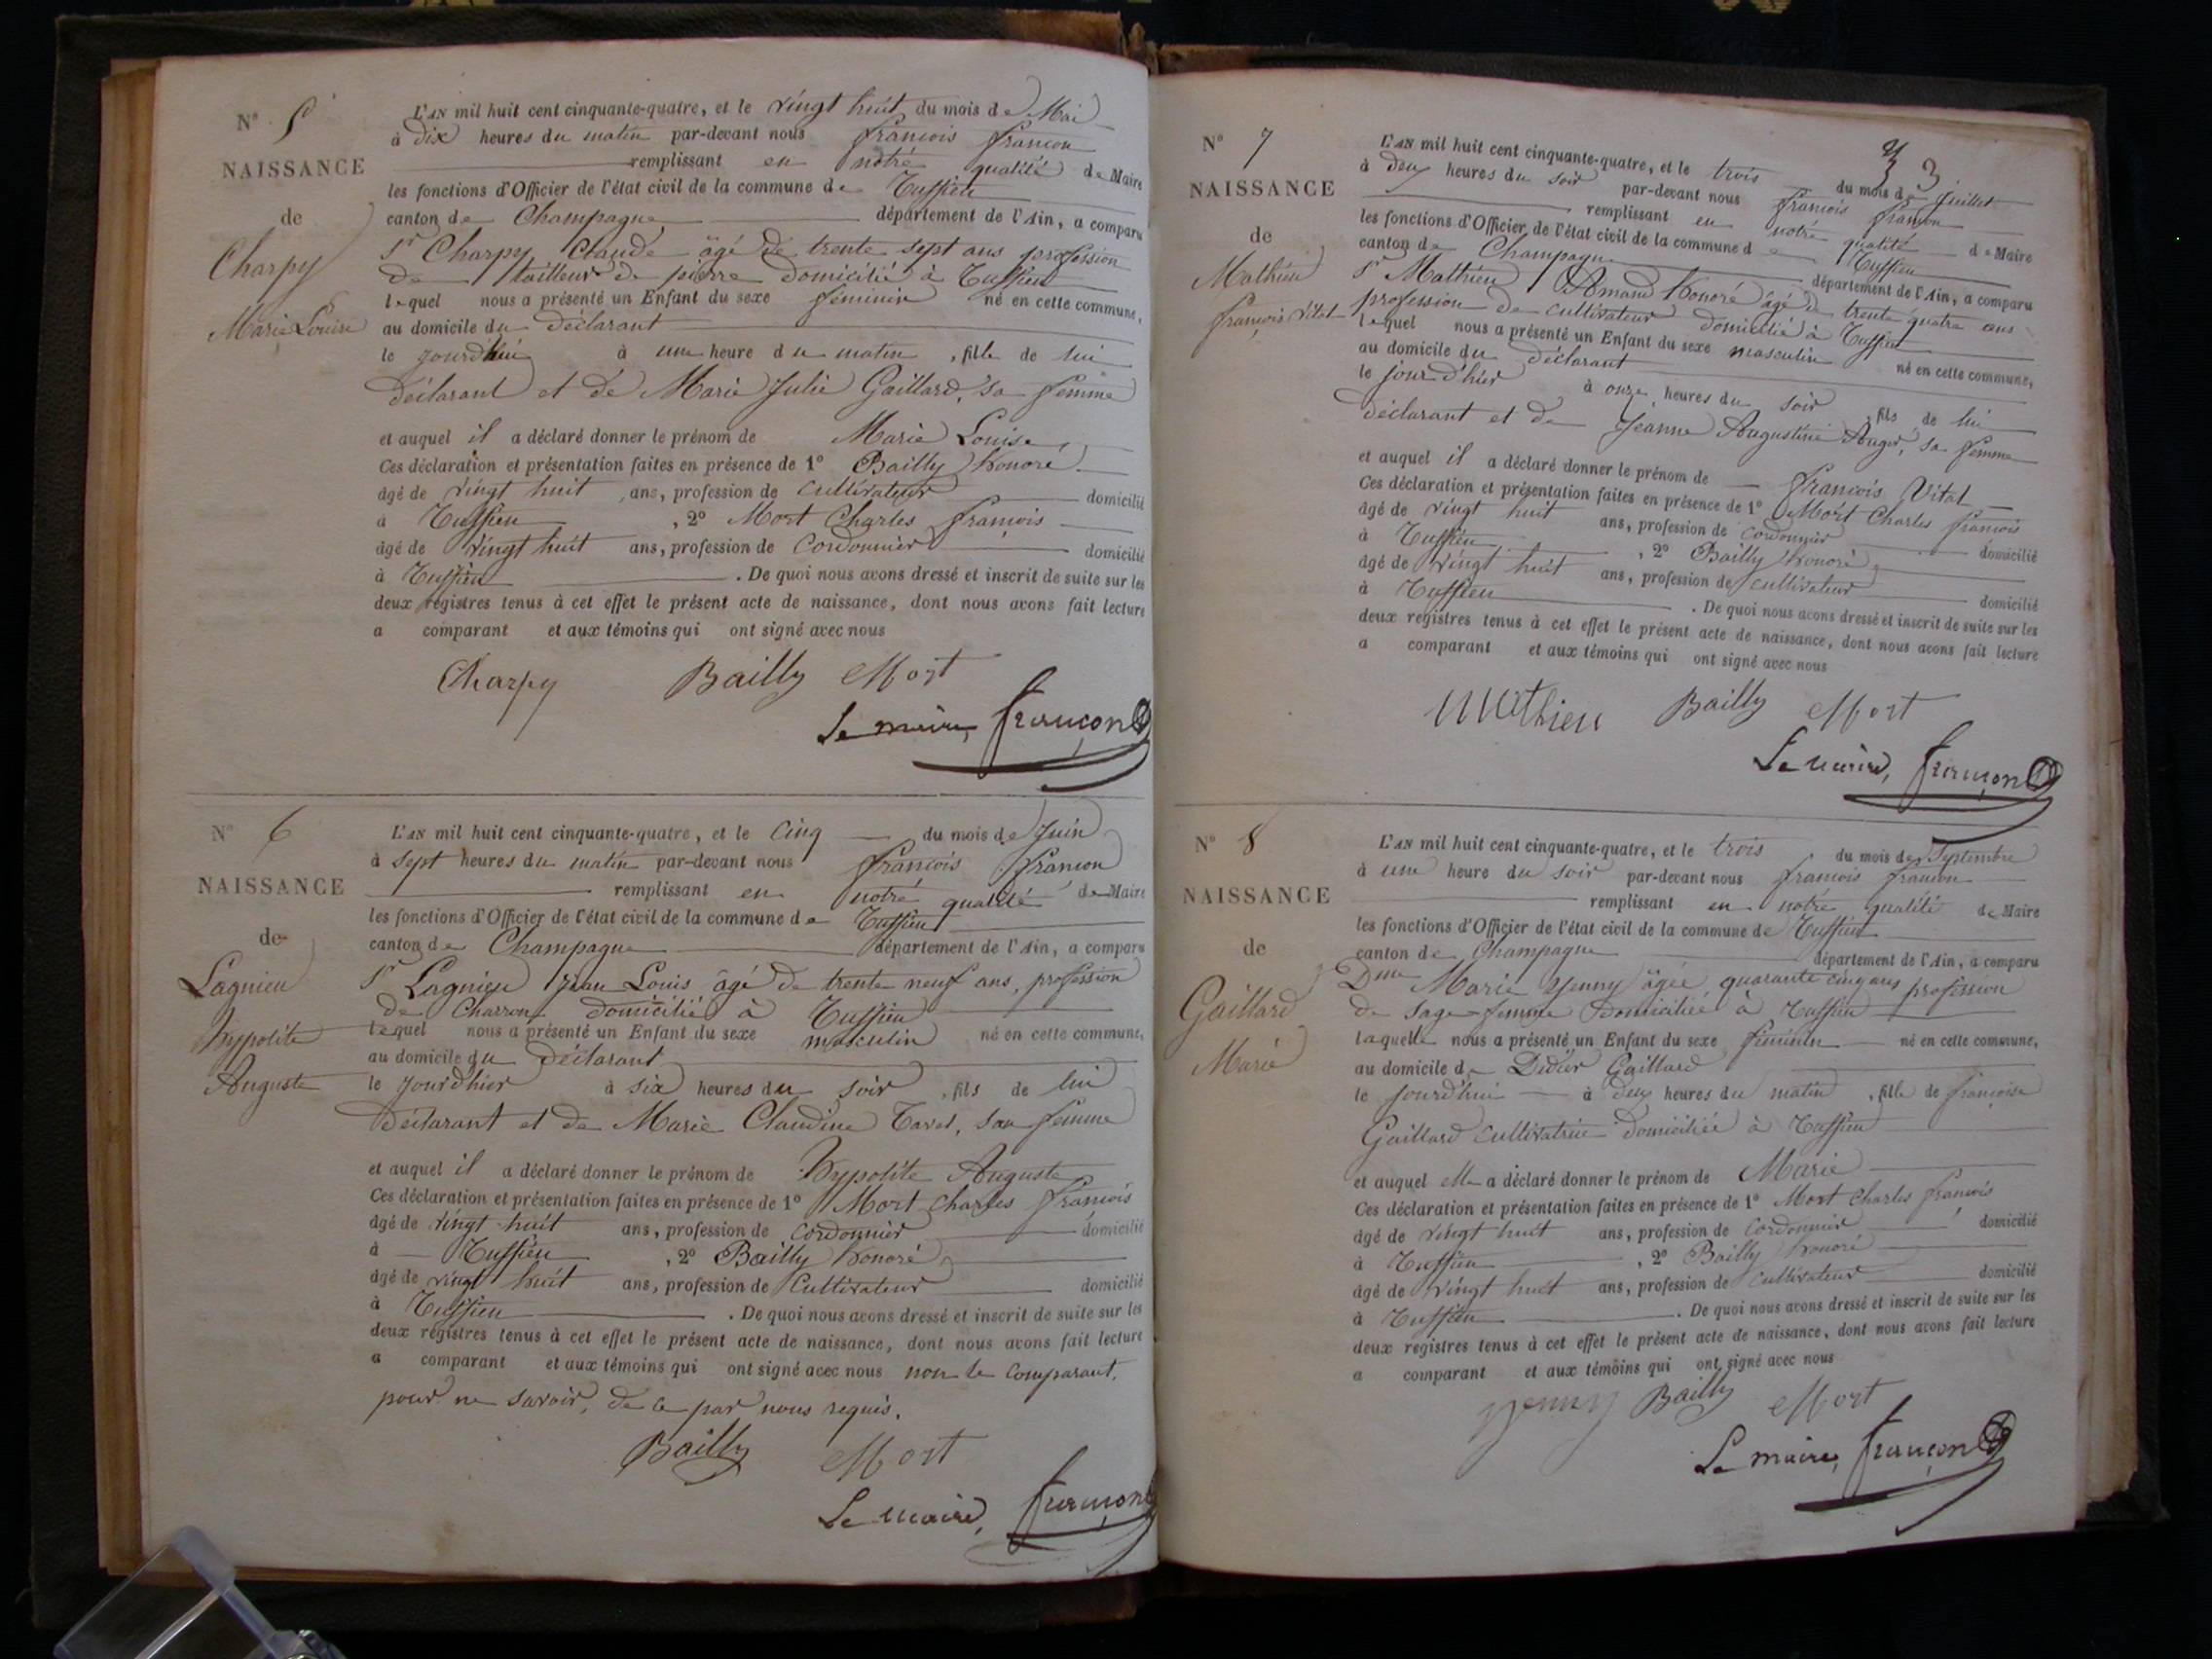 N° 5
NAISSANCE
de
Charpy
Marie Louise
L'AN mil huit cent cinquante-quatre, et le vingt huit du mois de Mai
à dix heures du matin par-devant nous françois françon
remplissant en notre qualité de Maire
les fonctions d'Officier de l'état civil de la commune de Tussieu
canton de Champagne département de l'Ain, a comparu
Sr Charpy Claude âgé de trente sept ans profession
de tailleur de pierre domicilié à Tussieu
lequel nous a présenté un Enfant du sexe féminin né en cette commune,
au domicile du déclarant
le jourd'hui à une heure du matin, fille de lui
déclarant et de Marie Julie Gaillard, sa femme
et auquel il a déclaré donner le prénom de Marie Louise
Ces déclaration et présentation faites en présence de 1° Bailly honoré
âgé de vingt huit ans, profession de cultivateur domicilié
à Tussieu, 2° Mort Charles françois
âgé de vingt huit ans, profession de cordonnier domicilié
à Tussieu. De quoi nous avons dressé et inscrit de suite sur les
deux registres tenus à cet effet le présent acte de naissance, dont nous avons fait lecture
a comparant et aux témoins qui ont signé avec nous
Charpy Bailly Mort
Le maire, françon
N° 6
NAISSANCE
de
Lagnieu
hypolite
Auguste
L'AN mil huit cent cinquante-quatre, et le cinq du mois de Juin
à sept heures du matin par-devant nous françois françon
remplissant en notre qualité de Maire
les fonctions d'Officier de l'état civil de la commune de Tussieu
canton de Champagne département de l'Ain, a comparu
Sr Lagnieu Jean Louis âgé de trente neuf ans, profession
de Charron domicilié à Tussieu
lequel nous a présenté un Enfant du sexe masculin né en cette commune,
au domicile du déclarant
le jourd'hier à six heures du soir, fils de lui
déclarant et de Marie Claudine Tavel, sa femme
et auquel il a déclaré donner le prénom de hypolite Auguste
Ces déclaration et présentation faites en présence de 1° Mort Charles françois
âgé de vingt huit ans, profession de cordonnier domicilié
à Tussieu, 2° Bailly honoré
âgé de vingt huit ans, profession de Cultivateur domicilié
à Tussieu. De quoi nous avons dressé et inscrit de suite sur les
deux registres tenus à cet effet le présent acte de naissance, dont nous avons fait lecture
a comparant et aux témoins qui ont signé avec nous non le comparant,
pour ne savoir, de ce par nous requis.
Bailly Mort
Le maire, françon
3 3
N° 7
NAISSANCE
de
Mathieu
françois Vital
L'AN mil huit cent cinquante-quatre, et le trois du mois de Juillet
à deux heures du soir par-devant nous françois françon
remplissant en notre qualité de Maire
les fonctions d'Officier de l'état civil de la commune de Tussieu
canton de Champagne département de l'Ain, a comparu
Sr Mathieu Amand honoré âgé de trente quatre ans
profession de cultivateur domicilié à Tussieu
lequel nous a présenté un Enfant du sexe masculin né en cette commune,
au domicile du déclarant
le jour d'hier à onze heures du soir, fils de lui
déclarant et de Jeanne Augustine Auger, sa femme
et auquel il a déclaré donner le prénom de françois Vital
Ces déclaration et présentation faites en présence de 1° Mort Charles françois
âgé de vingt huit ans, profession de cordonnier domicilié
à Tussieu, 2° Bailly honoré
âgé de vingt huit ans, profession de cultivateur domicilié
à Tussieu. De quoi nous avons dressé et inscrit de suite sur les
deux registres tenus à cet effet le présent acte de naissance, dont nous avons fait lecture
a comparant et aux témoins qui ont signé avec nous
Mathieu Bailly Mort
Le maire, françon
N° 8
NAISSANCE
de
Gaillard
Marie
L'AN mil huit cent cinquante-quatre, et le trois du mois de Septembre
à une heure du soir par-devant nous françois françon
remplissant en notre qualité de Maire
les fonctions d'Officier de l'état civil de la commune de Tussieu
canton de Champagne département de l'Ain, a comparu
Dme Marie Yenny âgée quarante cinq ans profession
de sage-femme domiciliée à Tussieu
laquelle nous a présenté un Enfant du sexe féminin né en cette commune,
au domicile de Didier Gaillard
le jourd'hui à deux heures du matin, fille de françoise
Gaillard cultivatrice domiciliée à Tussieu
et auquel elle a déclaré donner le prénom de Marie
Ces déclaration et présentation faites en présence de 1° Mort Charles françois
âgé de vingt huit ans, profession de cordonnier domicilié
à Tussieu, 2° Bailly honoré
âgé de vingt huit ans, profession de cultivateur domicilié
à Tussieu. De quoi nous avons dressé et inscrit de suite sur les
deux registres tenus à cet effet le présent acte de naissance, dont nous avons fait lecture
a comparant et aux témoins qui ont signé avec nous
yenny Bailly Mort
Le maire, françon